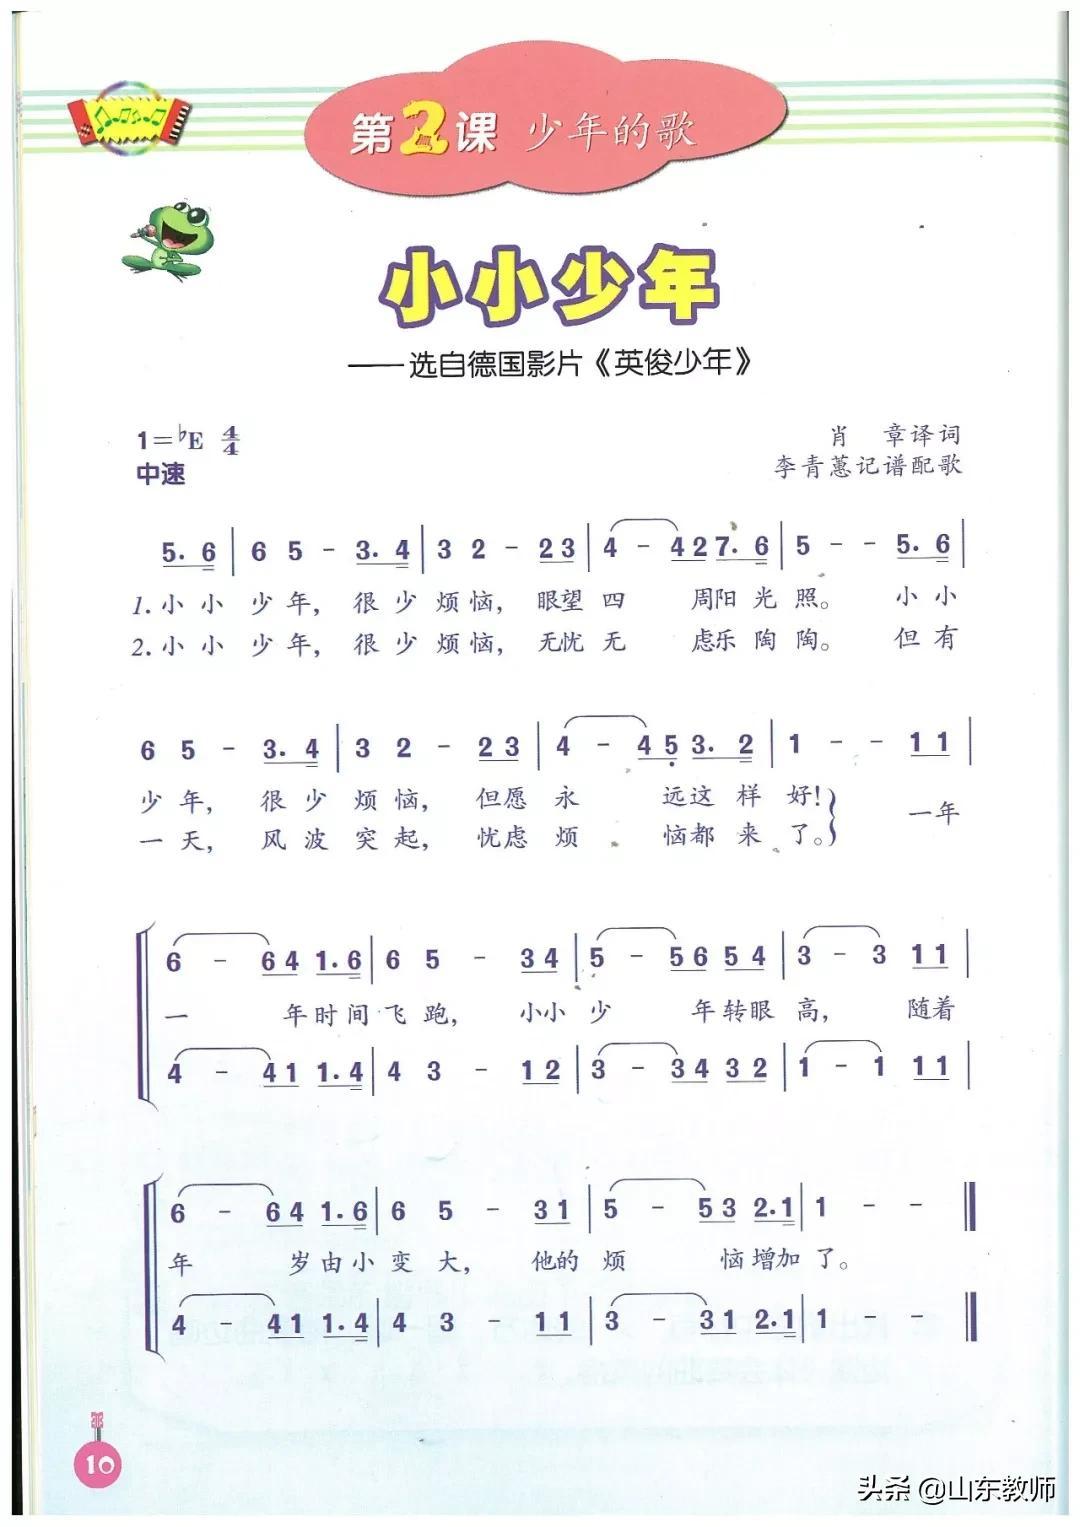 第2课 少年的歌
小小少年
——选自德国影片《英俊少年》
1=♭E 4/4
中速
肖 章译词
李青蕙记谱配歌
5. 6 | 6 5 - 3. 4 | 3 2 - 2 3 | 4 - 4 2 7. 6 | 5 - - 5. 6 |
1.小 小 少 年, 很 少 烦 恼, 眼望 四 周阳 光 照。 小 小
2.小 小 少 年, 很 少 烦 恼, 无忧 无 虑乐 陶 陶。 但 有
6 5 - 3. 4 | 3 2 - 2 3 | 4 - 4 5 3. 2 | 1 - - 1 1 |
少 年, 很 少 烦 恼, 但愿 永 远这 样 好!
一 天, 风 波 突 起, 忧虑 烦 恼都 来 了。
一年
6 - 6 4 1. 6 | 6 5 - 3 4 | 5 - 5 6 5 4 | 3 - 3 1 1 |
一 年时 间 飞 跑, 小小 少 年转 眼 高, 随着
4 - 4 1 1. 4 | 4 3 - 1 2 | 3 - 3 4 3 2 | 1 - 1 1 1 |
6 - 6 4 1. 6 | 6 5 - 3 1 | 5 - 5 3 2. 1 | 1 - -
年 岁由 小 变 大, 他的 烦 恼增 加 了。
4 - 4 1 1. 4 | 4 3 - 1 1 | 3 - 3 1 2. 1 | 1 - -
10
头条 @山东教师